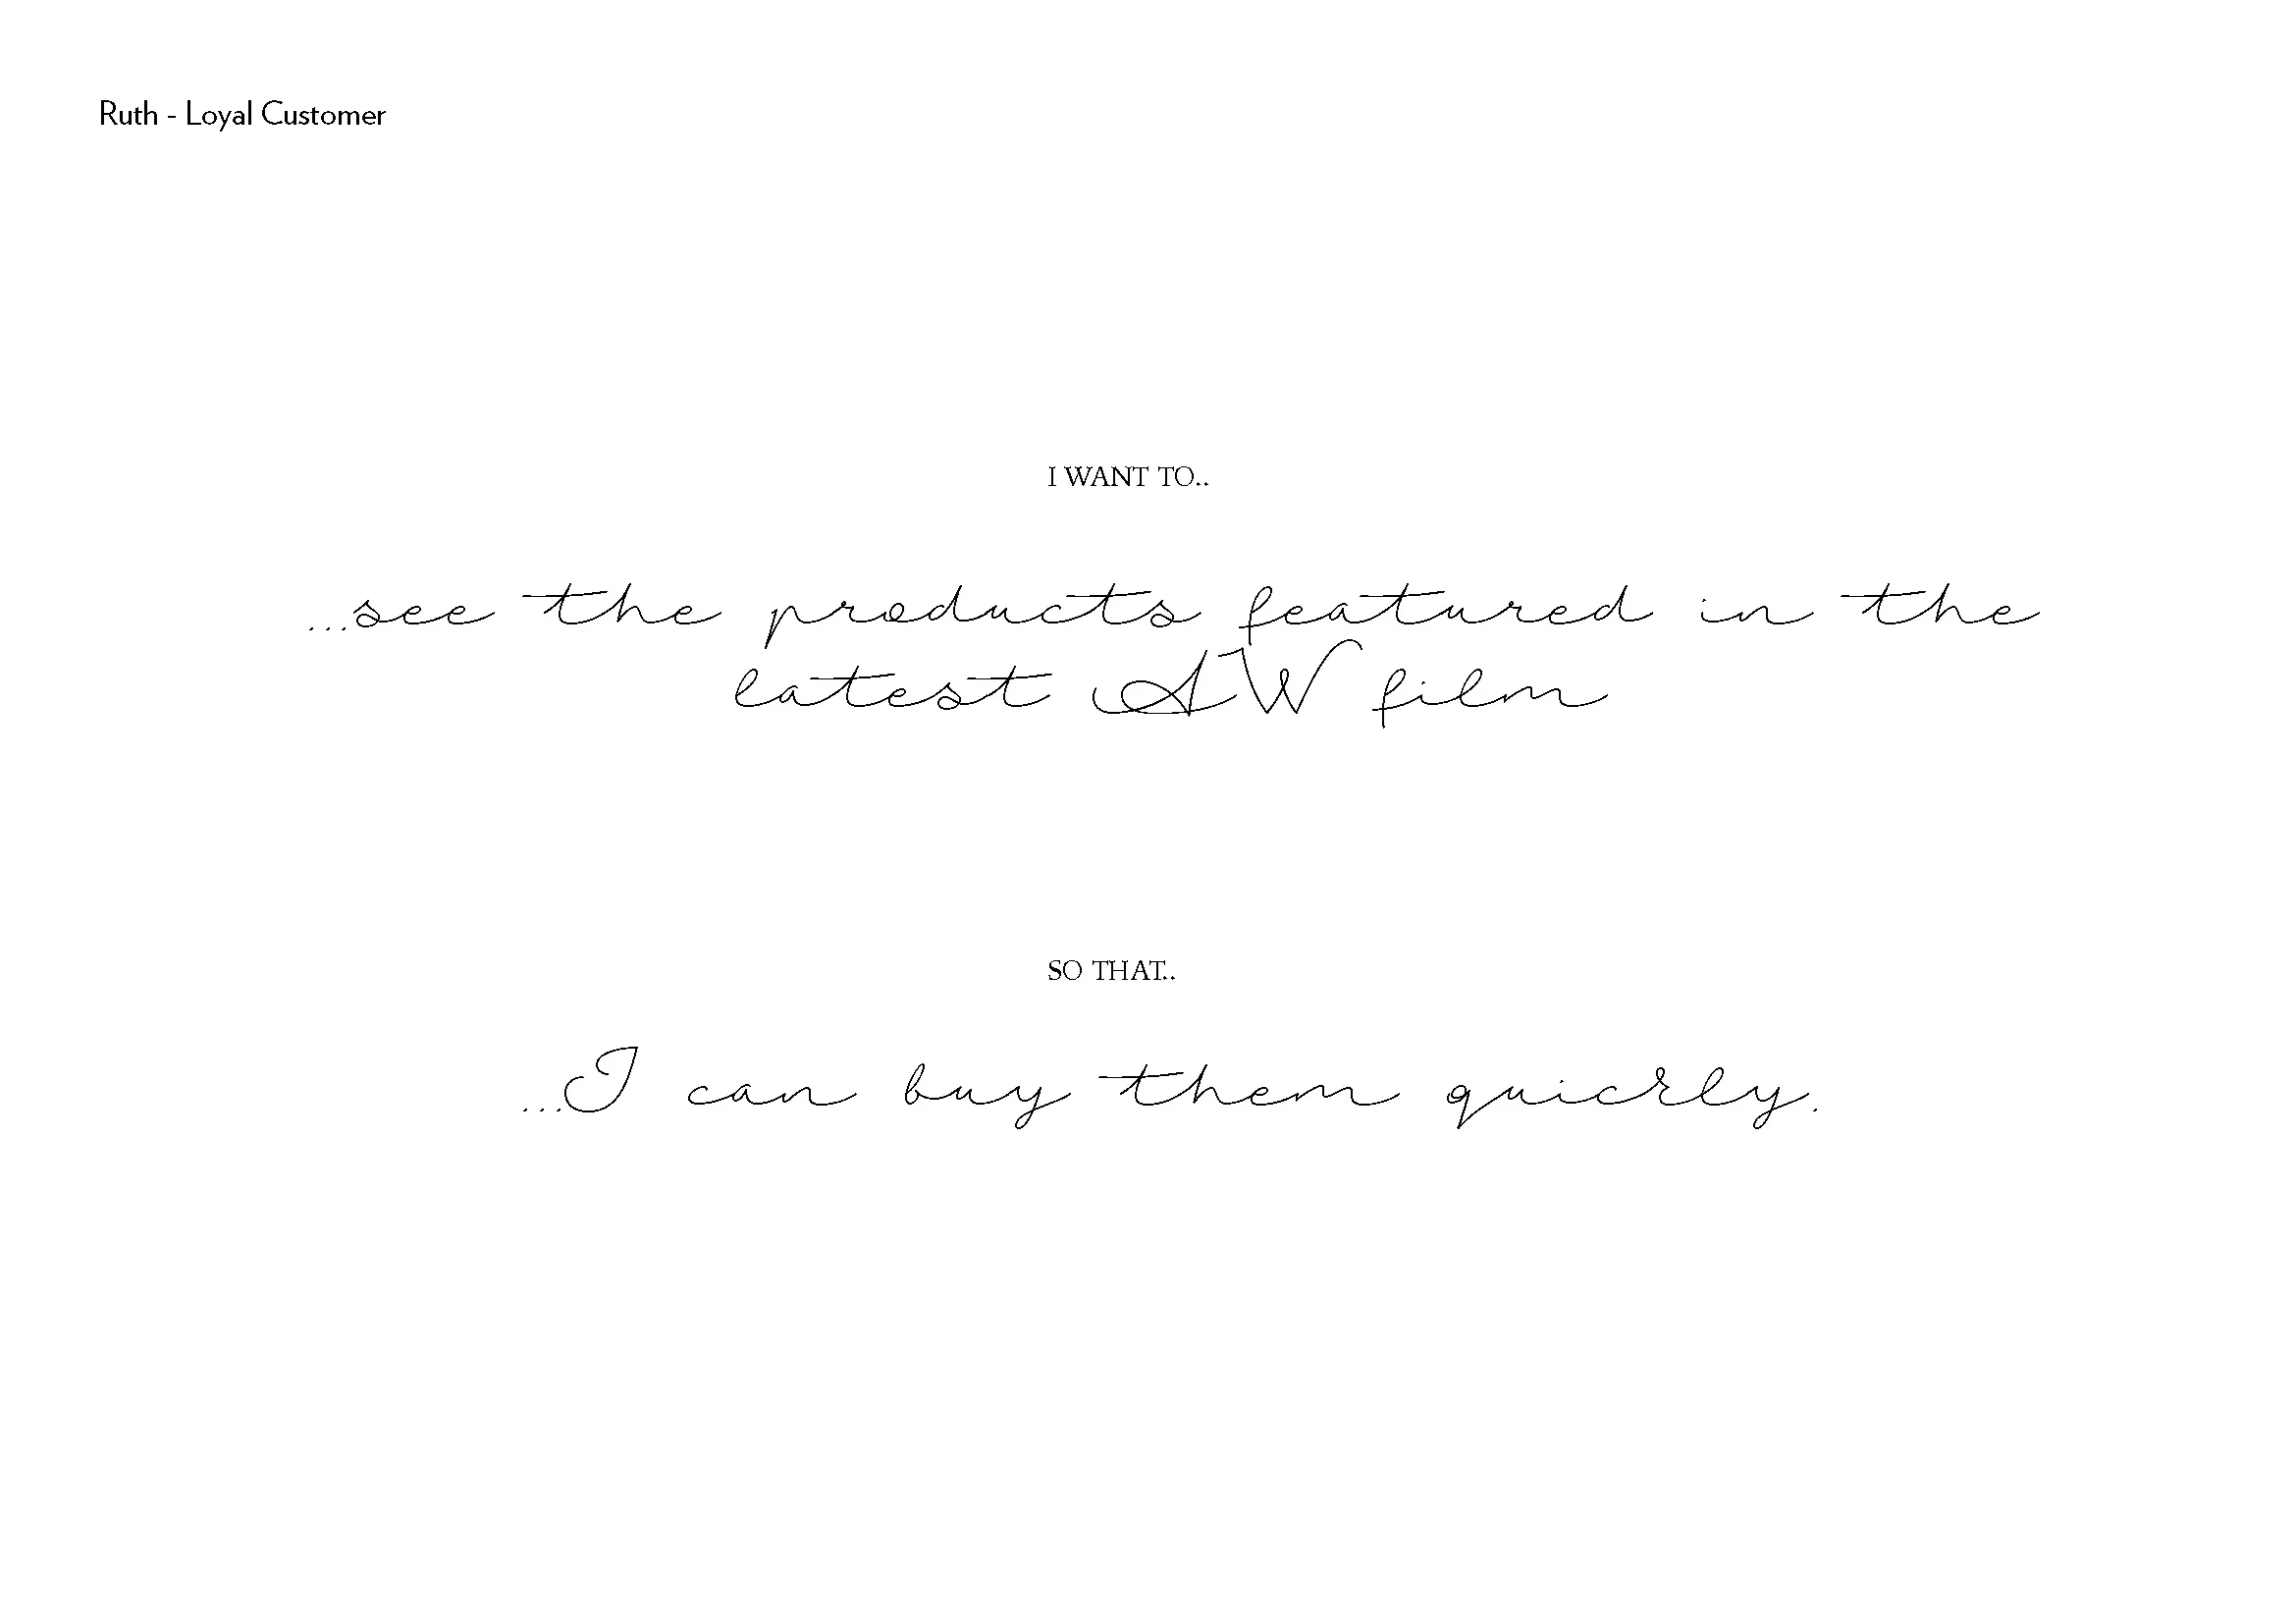 Ruth - Loyal Customer
I WANT TO..
...see the products featured in the
latest AW film
SO THAT..
...I can buy them quickly.